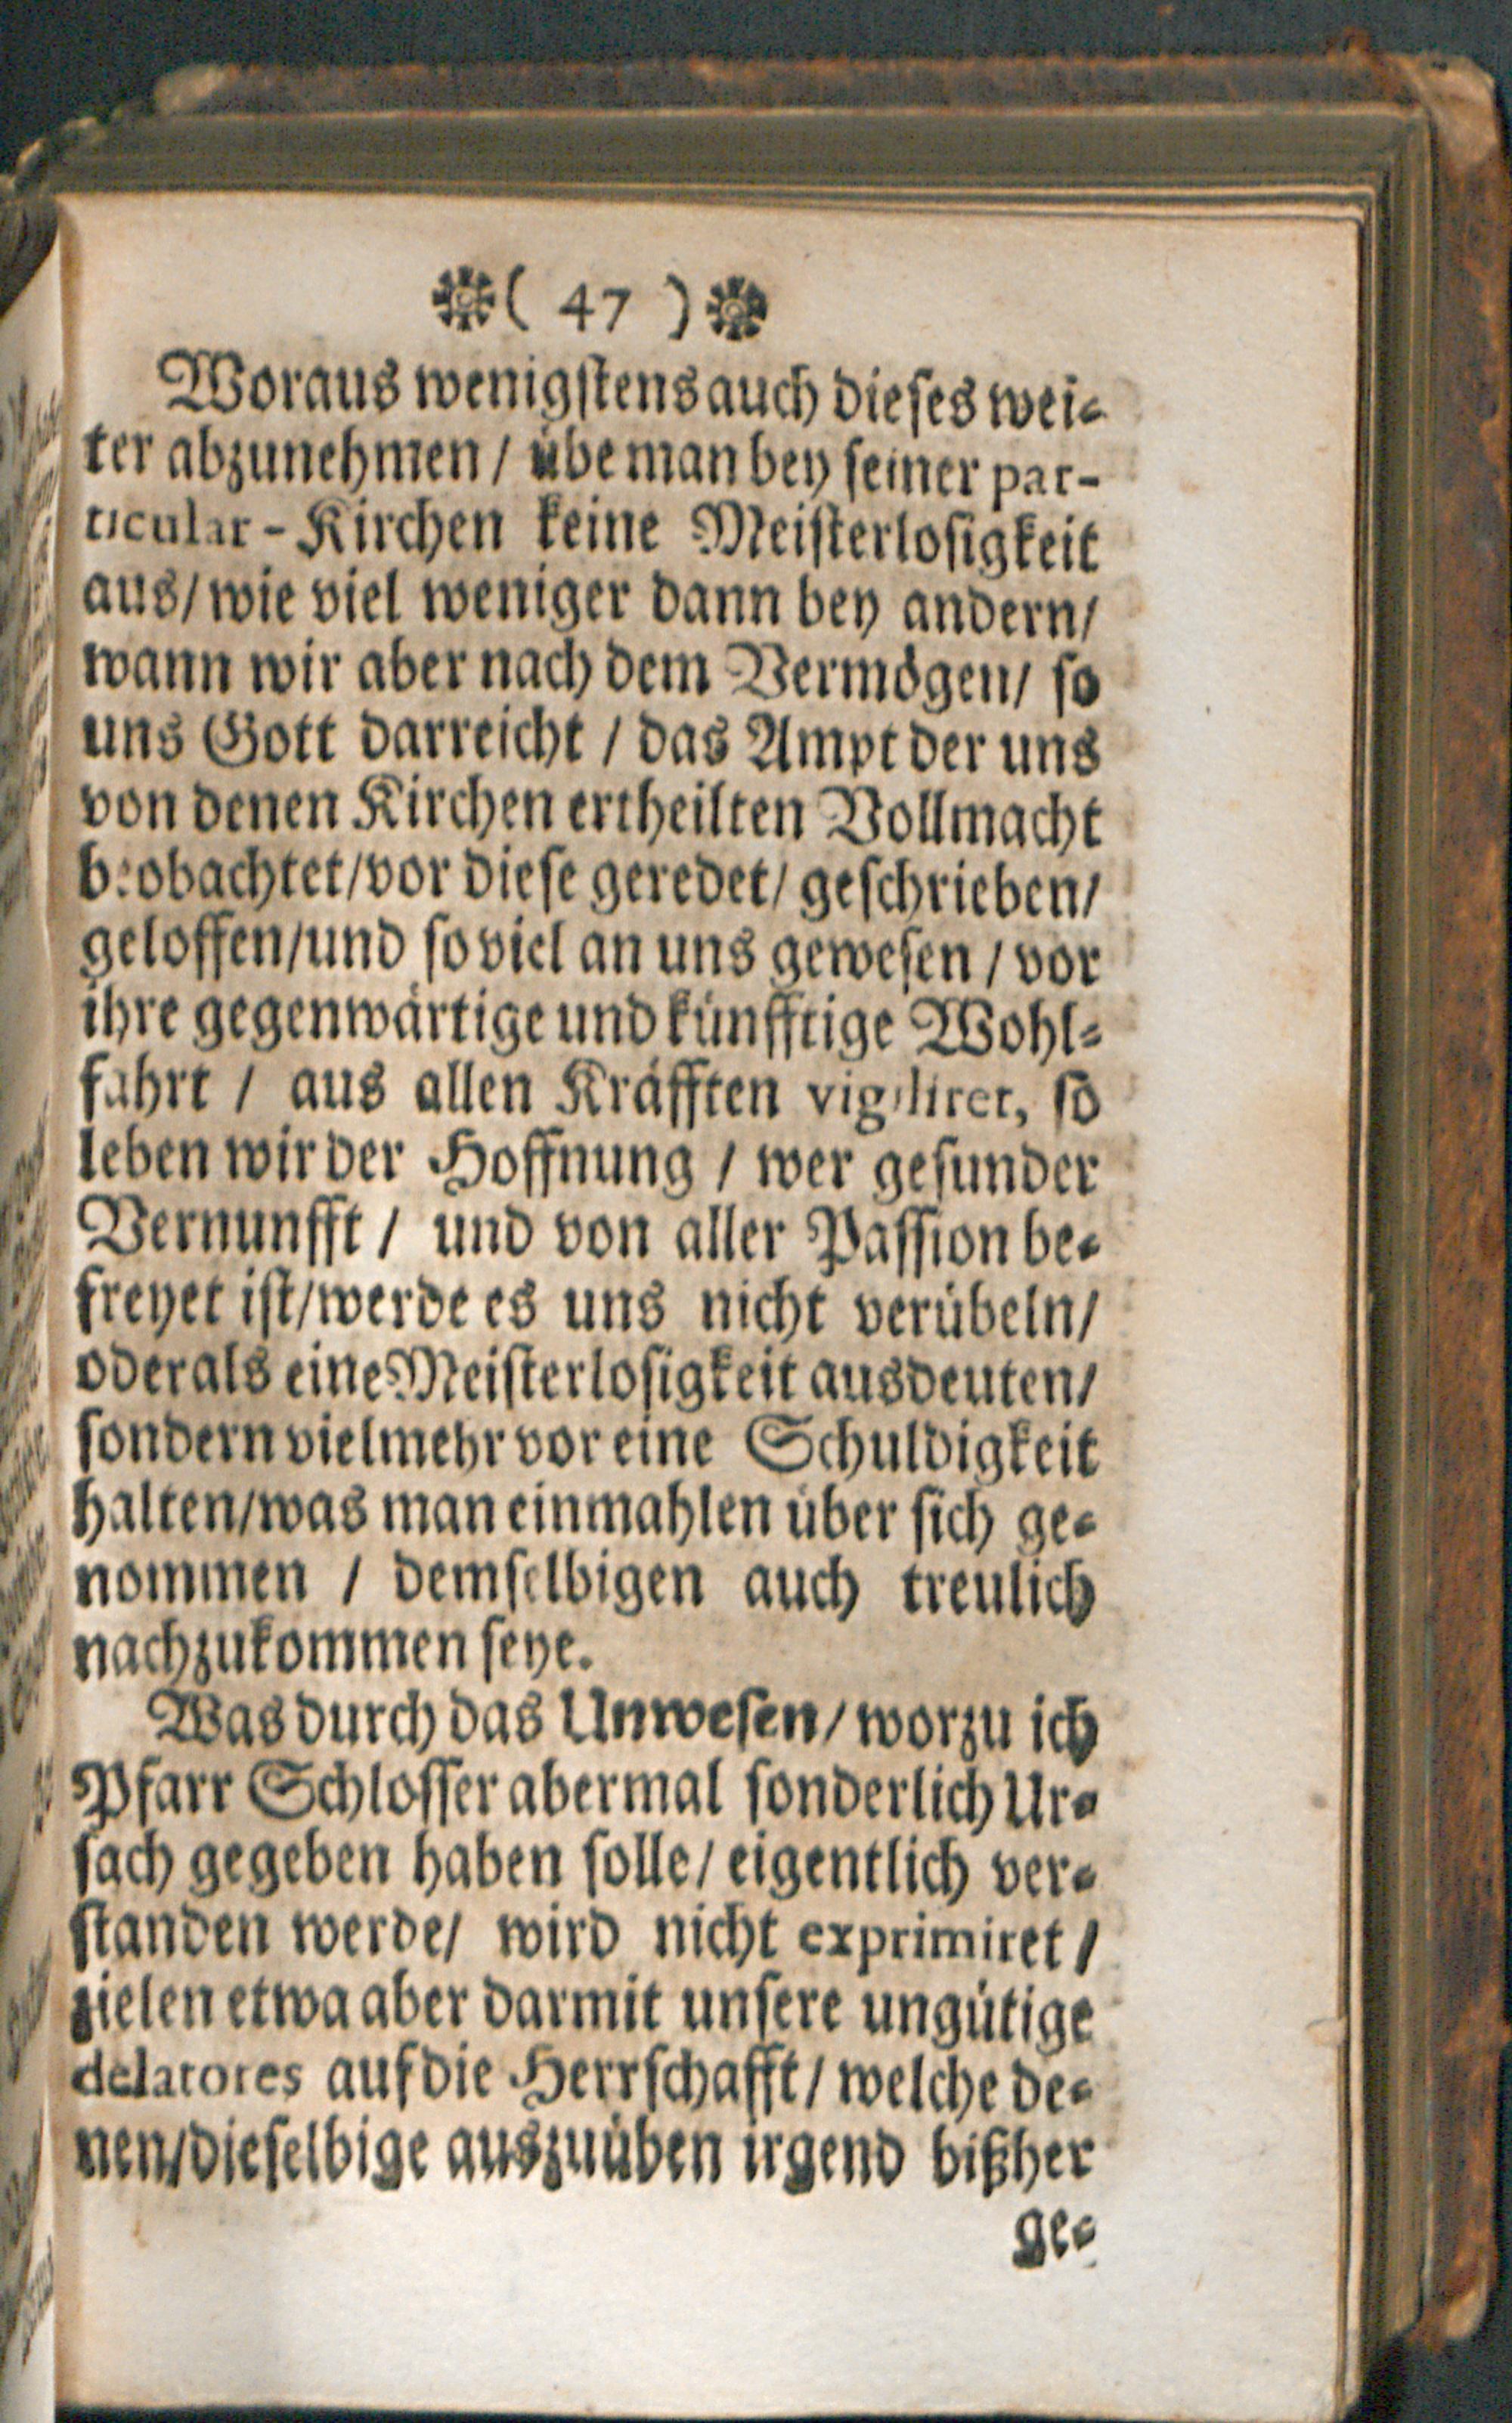 ( 47 )
Woraus wenigstens auch dieses wei-
ter abzunehmen / übe man bey seiner par-
ticular-Kirchen keine Meisterlosigkeit
aus/ wie viel weniger dann bey andern/
wann wir aber nach dem Vermögen/ so
uns Gott darreicht / das Ampt der uns
von denen Kirchen ertheilten Vollmacht
beobachtet/vor diese geredet/ geschrieben/
geloffen/und so viel an uns gewesen / vor
ihre gegenwärtige und künfftige Wohl-
fahrt / aus allen Kräfften vigiliret, so
leben wir der Hoffnung / wer gesunder
Vernunfft / und von aller Passion be-
freyet ist/werde es uns nicht verübeln/
oder als eine Meisterlosigkeit ausdeuten/
sondern vielmehr vor eine Schuldigkeit
halten/was man einmahlen über sich ge-
nommen / demselbigen auch treulich
nachzukommen seye.
Was durch das Unwesen/ worzu ich
Pfarr Schlosser abermal sonderlich Ur-
sach gegeben haben solle/ eigentlich ver-
standen werde/ wird nicht exprimiret /
zielen etwa aber darmit unsere ungütige
delatores auf die Herrschafft/ welche de-
nen/dieselbige auszuüben irgend bißher
ge-